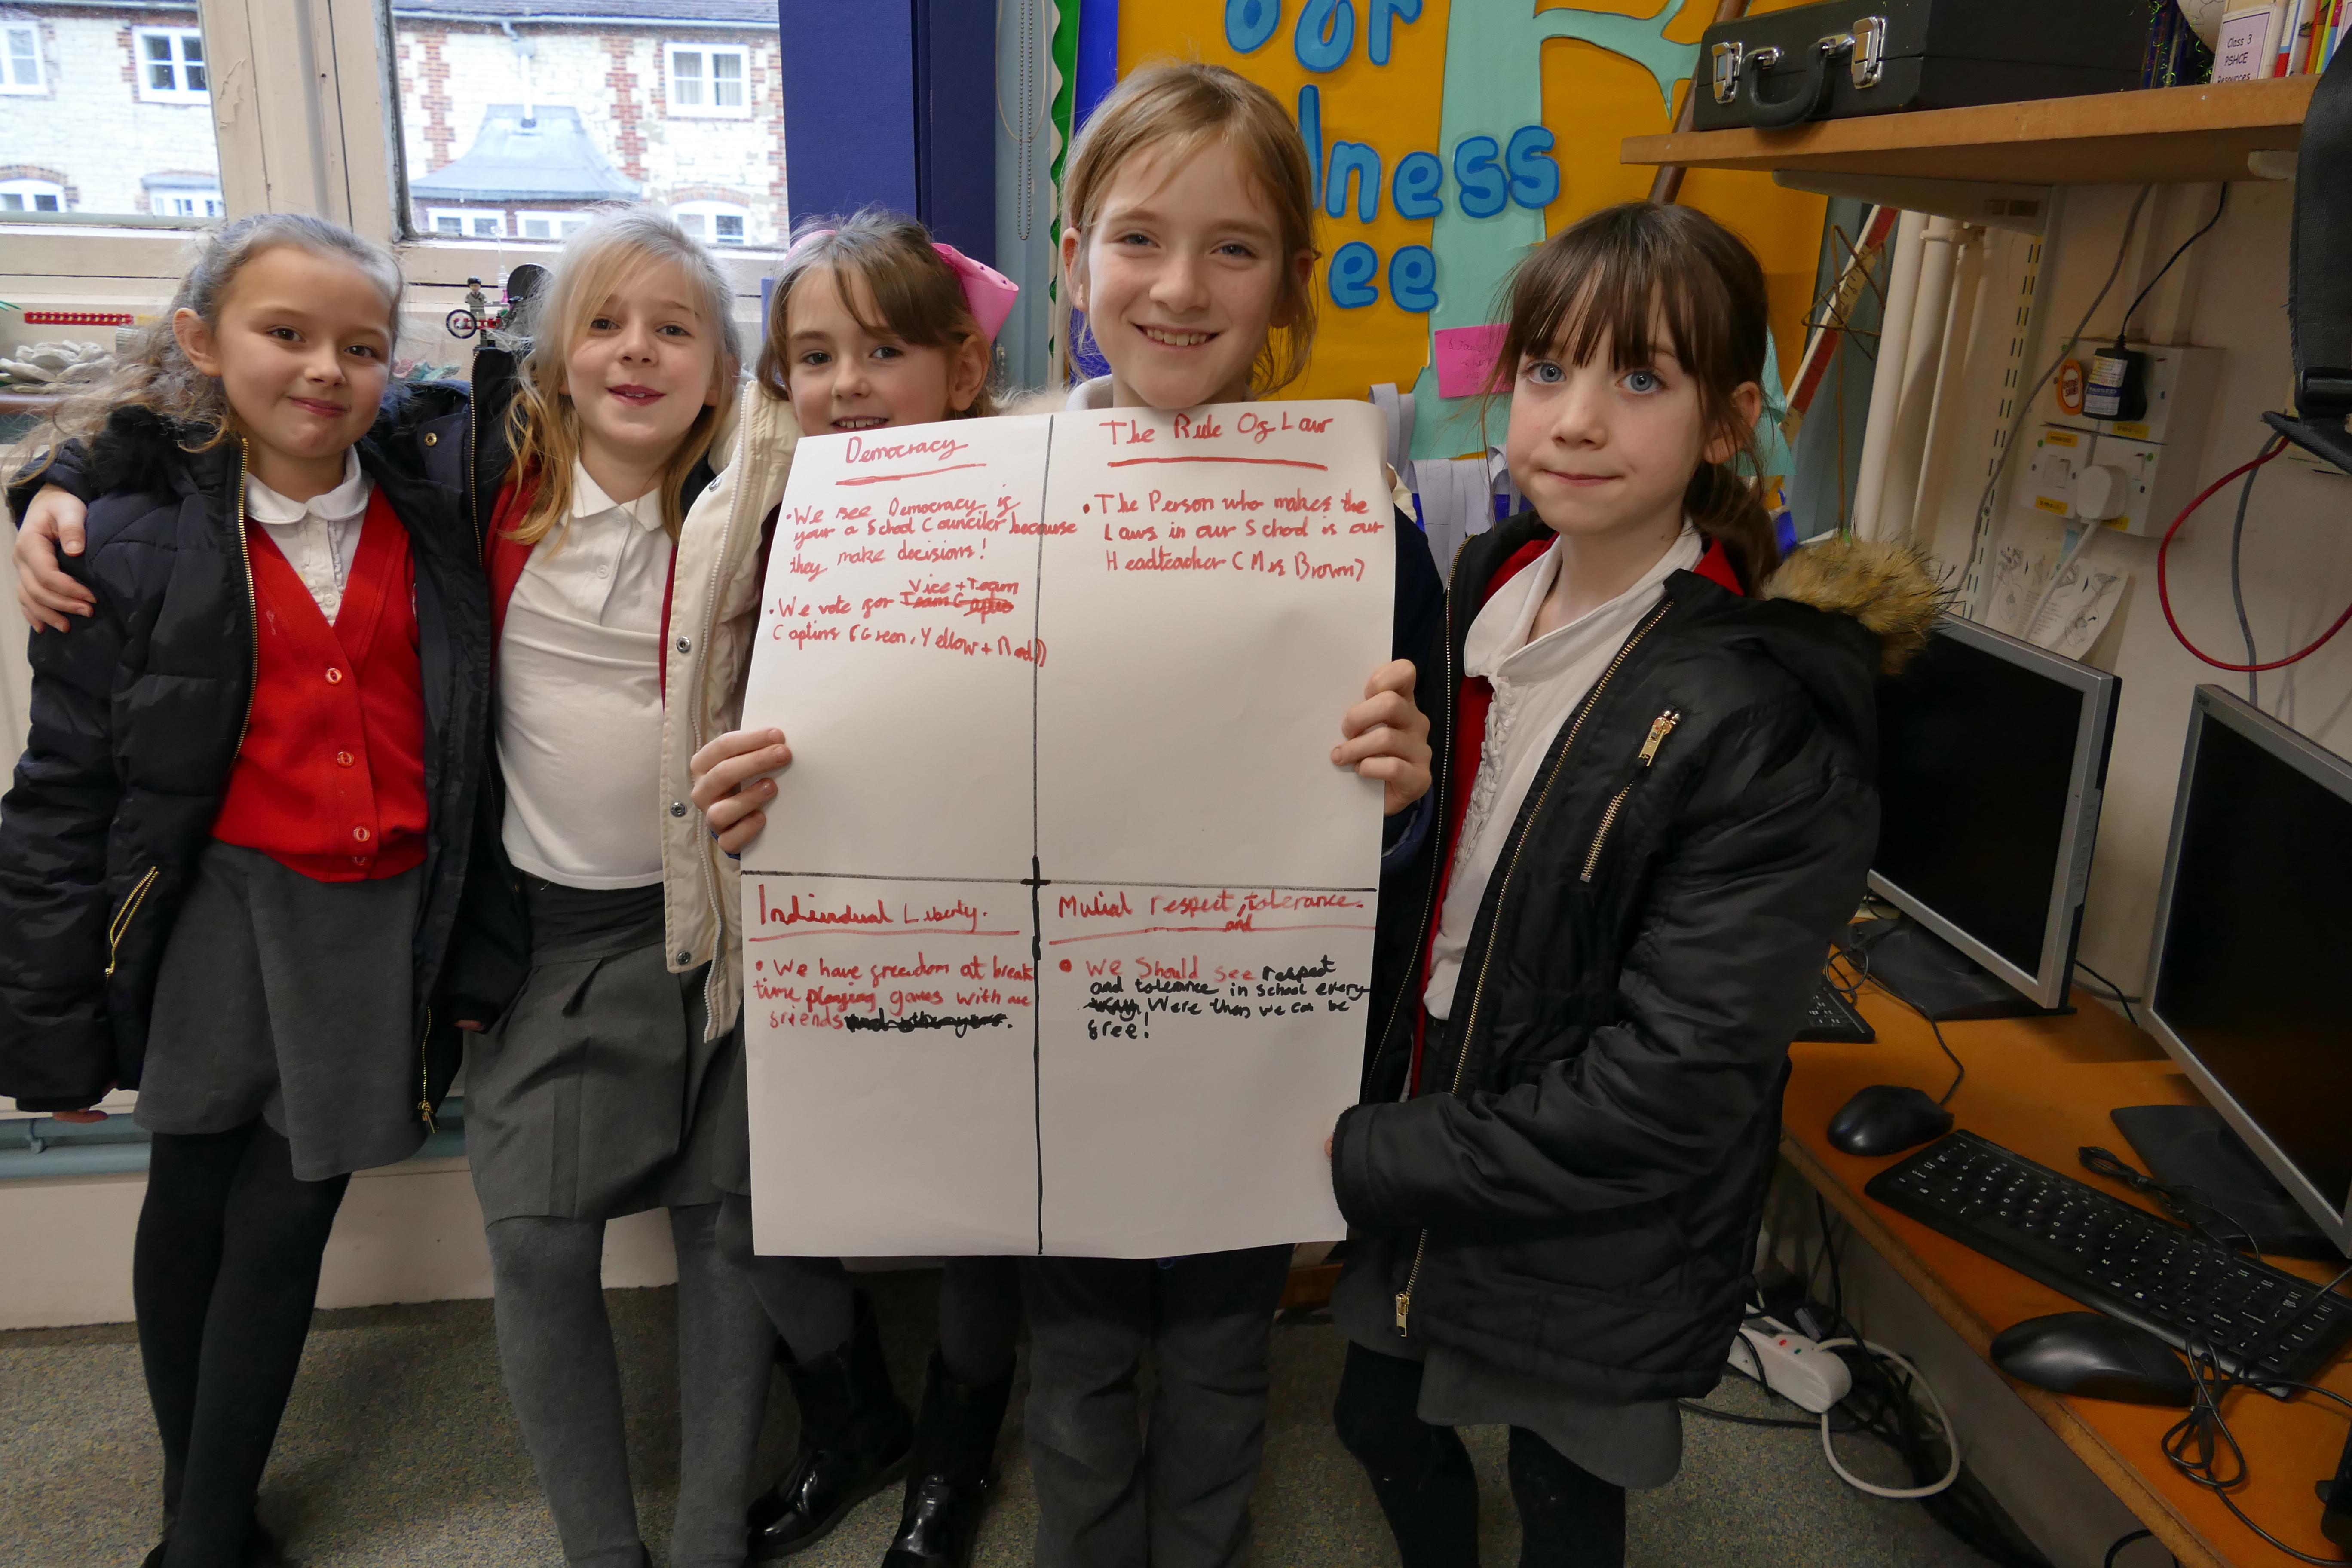 our
ness
ee
Class 3
PSHCE
Resources
Democracy
• We see Democracy is
your a School Counciler because
they make decisions!
Vice + Team
• We vote for
Captins (Green, Yellow + Red)
The Rule Of Law
• The Person who makes the
Laws in our School is our
Headteacher (Mrs Brown)
Individual Liberty.
• We have freedom at break
time playing games with are
friends
Mutial respect, tolerance.
and
• We Should see respect
and tolerance in school every
Were then we can be
free!